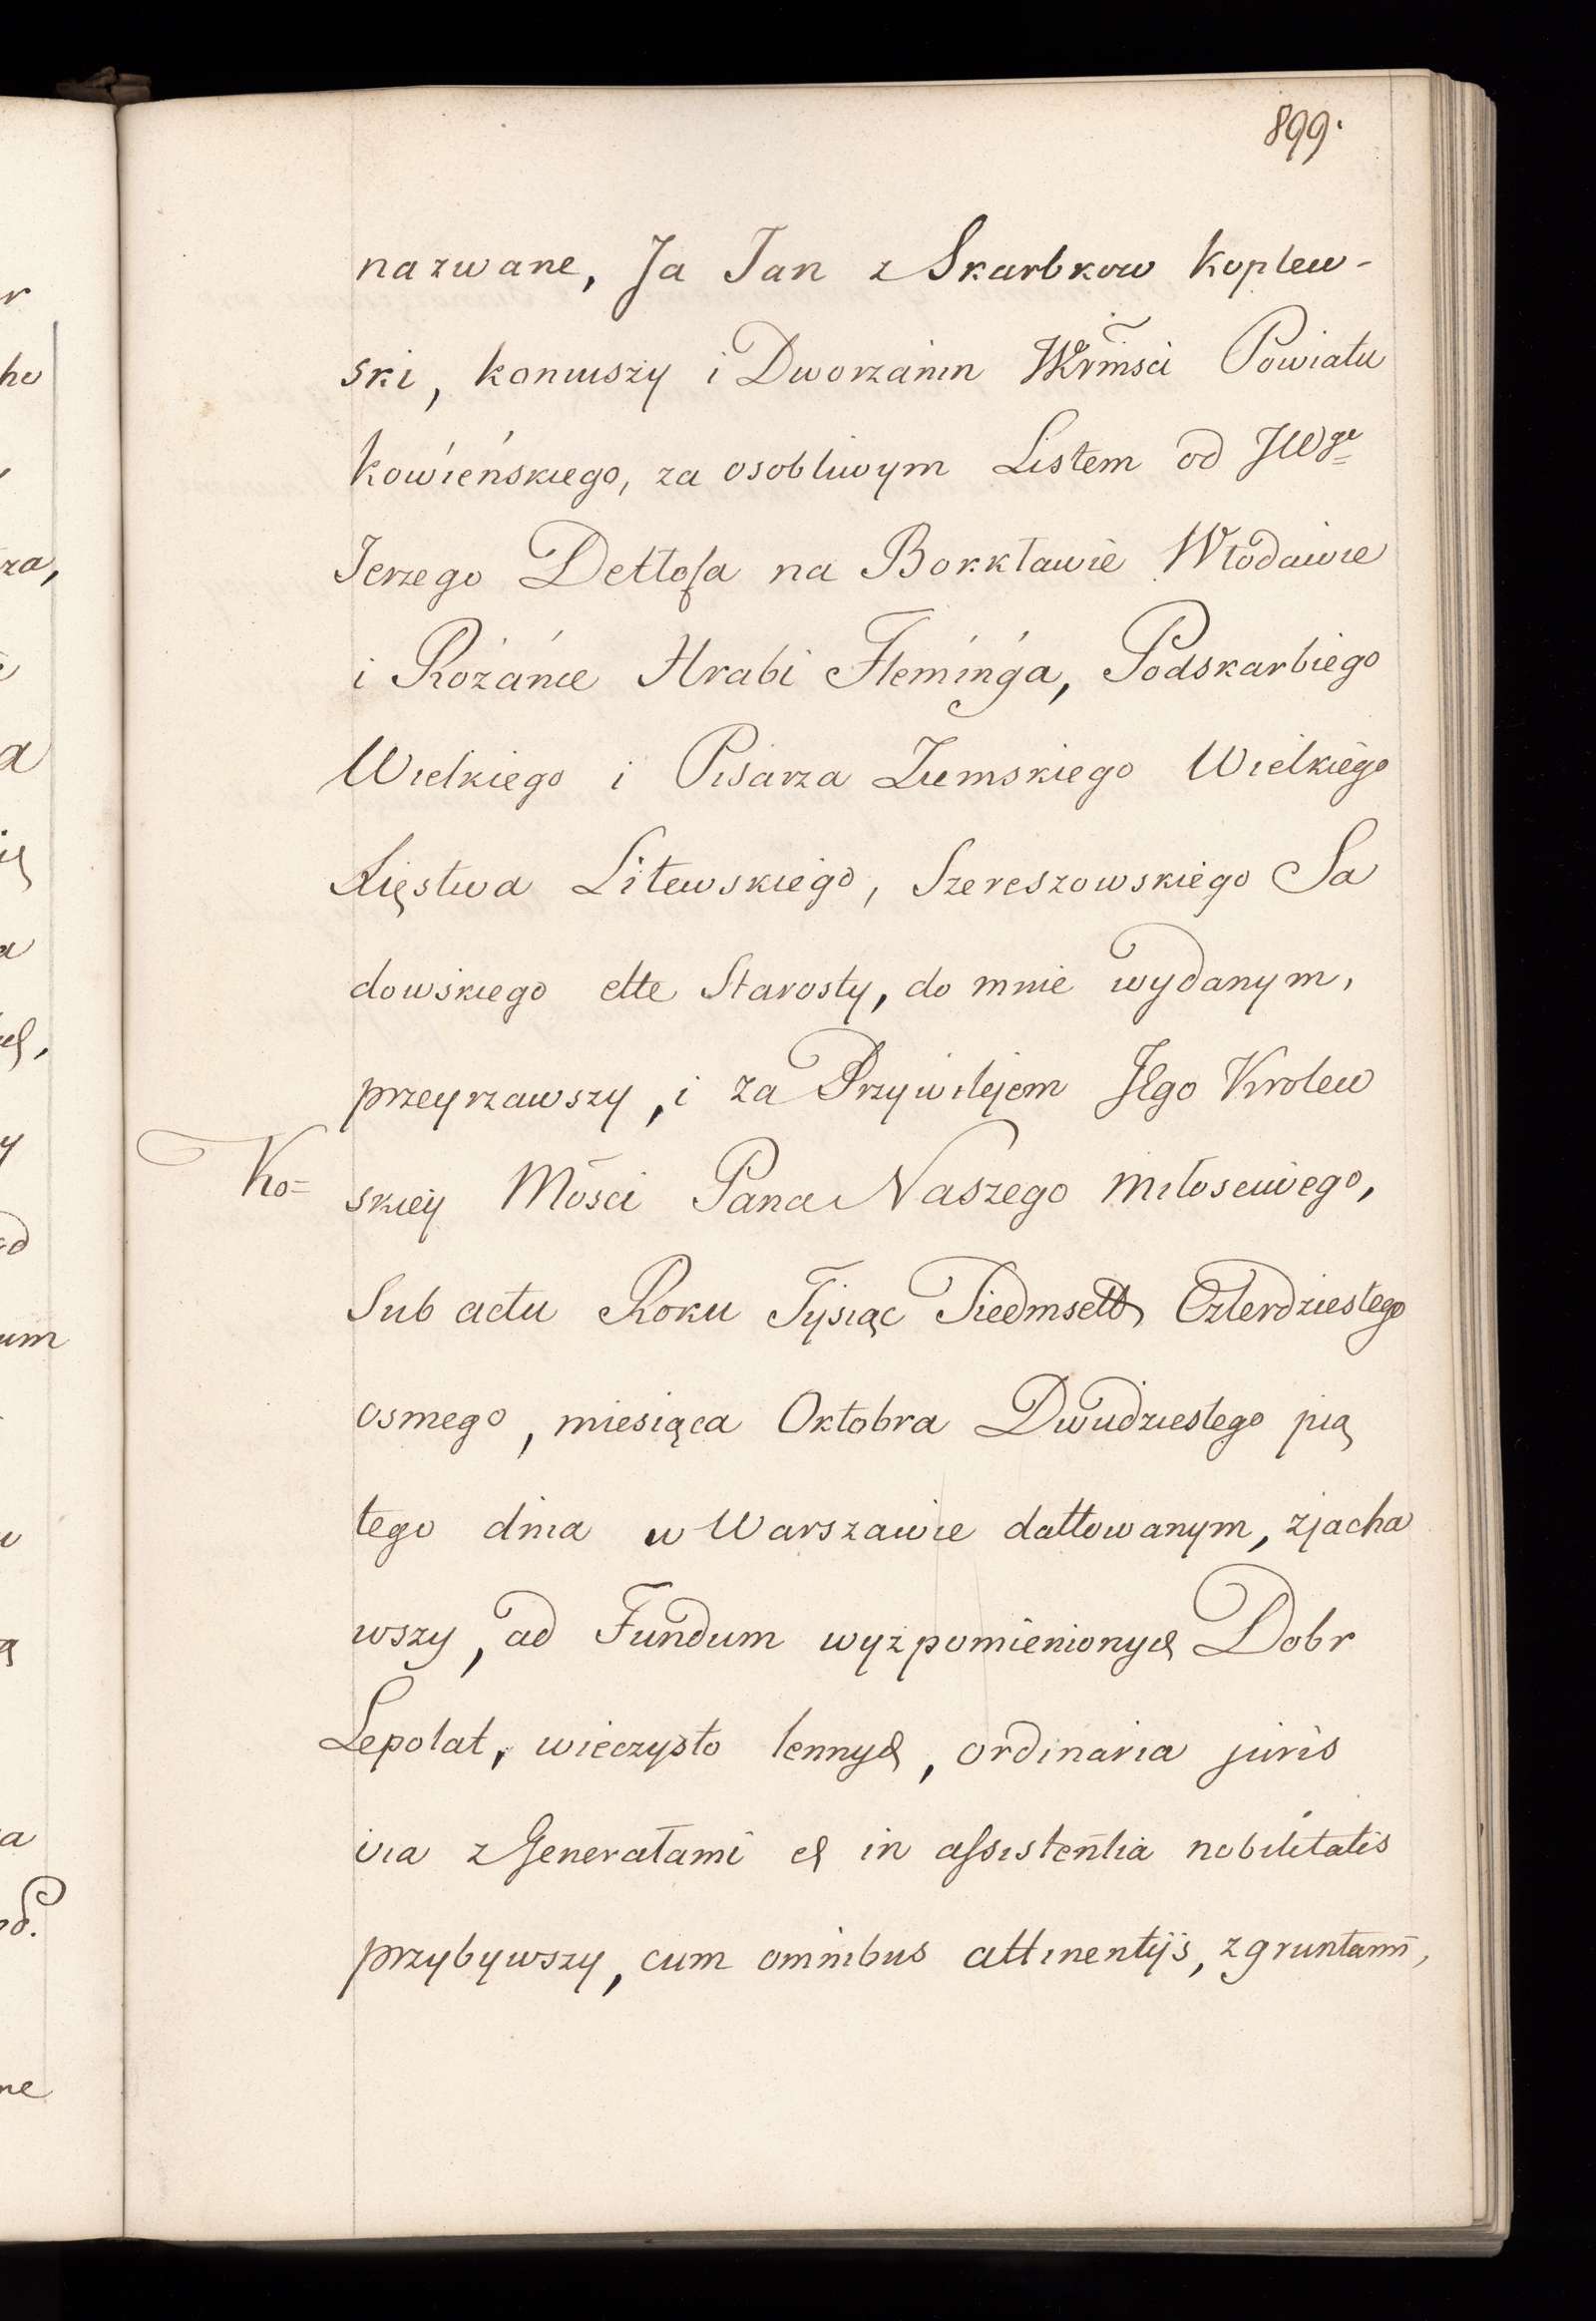 899.
nazwane, Ja Jan z Skarbkow Koplew-
ski, koniuszy i Dworzanin Powiatu
kowieńskiego, za osobliwym Listem od JWgo
Jerzego Detlofa na Borkławie Włodawie
i Rożańce Hrabi Fleminga, Podskarbiego
Wielkiego i Pisarza Ziemskiego Wielkiego
Xięstwa Litewskiego, Szereszowskiego Sa
dowskiego ette Starosty, do mnie wydanym,
przeyrzawszy, i za Przywilejem Jego Krolew
Ko= skiey Mości Pana Naszego miłosciwego,
Sub actu Roku Tysiąc Siedmsett Czterdziestego
osmego, miesiąca Oktobra Dwudziestego pią
tego dnia w Warszawie dattowanym, zjacha
wszy, ad Fundum wyzpomienionych Dobr
Lepolat, wieczysto lennych, ordinaria juris
via z Generałami et in assistentia nobilitatis
przybywszy, cum omnibus attinentijs, z gruntami,